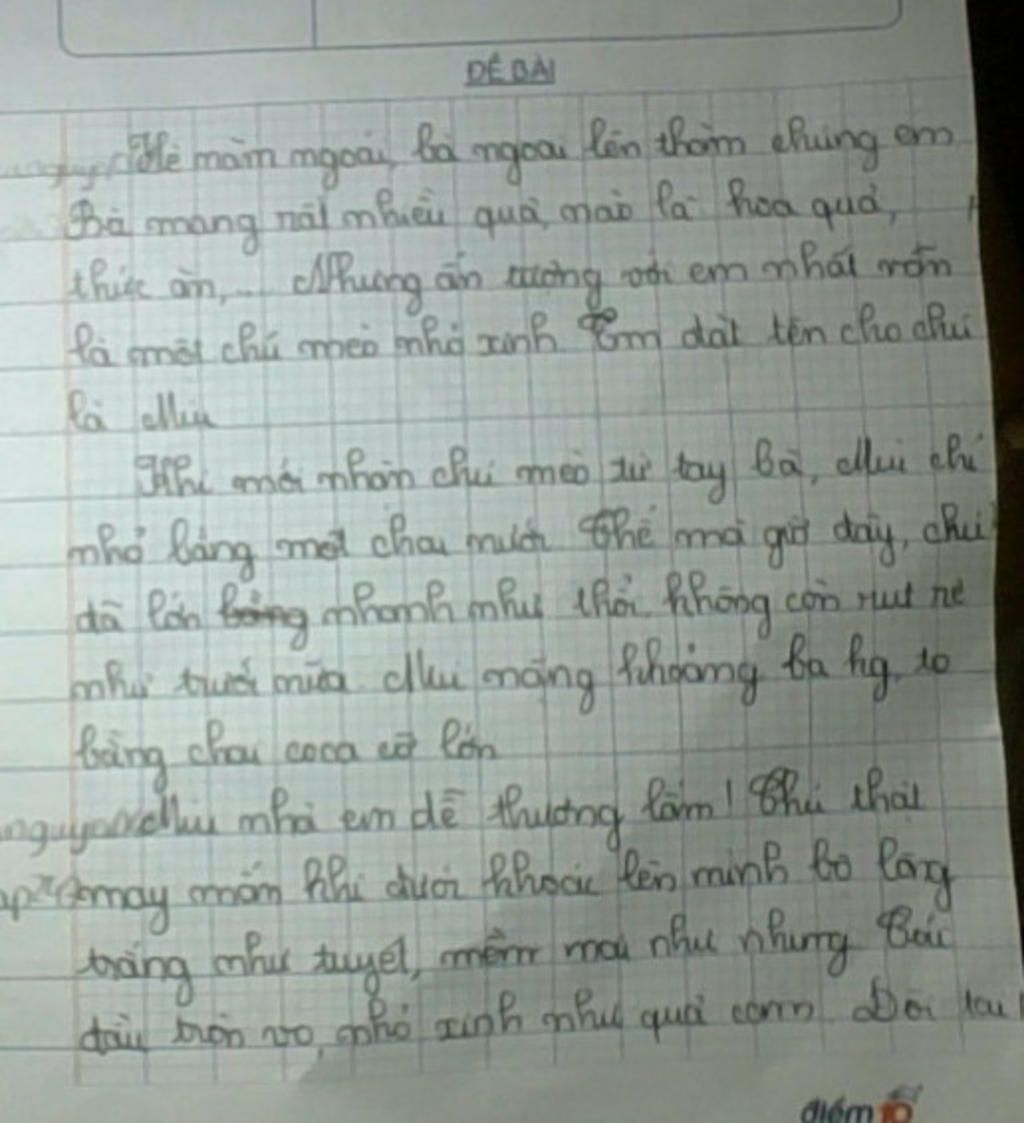 ĐỀ BÀI
Hè năm ngoái, bà ngoại lên thăm chúng em
Bà mang rất nhiều quà, nào là hoa quả,
thức ăn,... Nhưng ấn tượng với em nhất vẫn
là một chú mèo nhỏ xinh Em đặt tên cho chú
là Miu
Khi mới nhận chú mèo từ tay bà, Miu chỉ
nhỏ bằng một chai nước Thế mà giờ đây, chú
đã lớn nhanh như thổi không còn rụt rè
như trước nữa Miu nặng khoảng ba kg, to
bằng chai coca cỡ lớn
Miu nhà em dễ thương lắm! Chú thật
may mắn khi được khoác lên mình bộ lông
trắng như tuyết, mềm mại như nhung Cái
đầu tròn vo, nhỏ xinh như quả cam Đôi tai
điểm 10